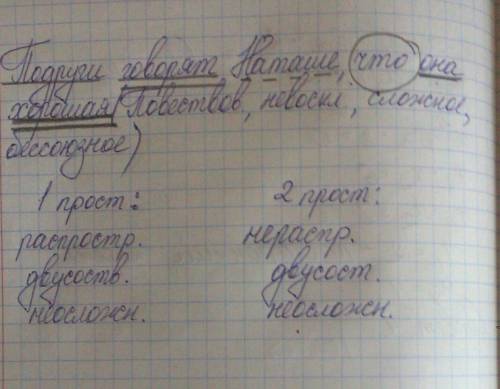 Подруги говорят Наташе, что она
хорошая (Повествов, невоскл, сложное,
бессоюзное)
1 прост: 2 прост:
распростр. нераспр.
двусоств. двусост.
неосложн. неосложн.